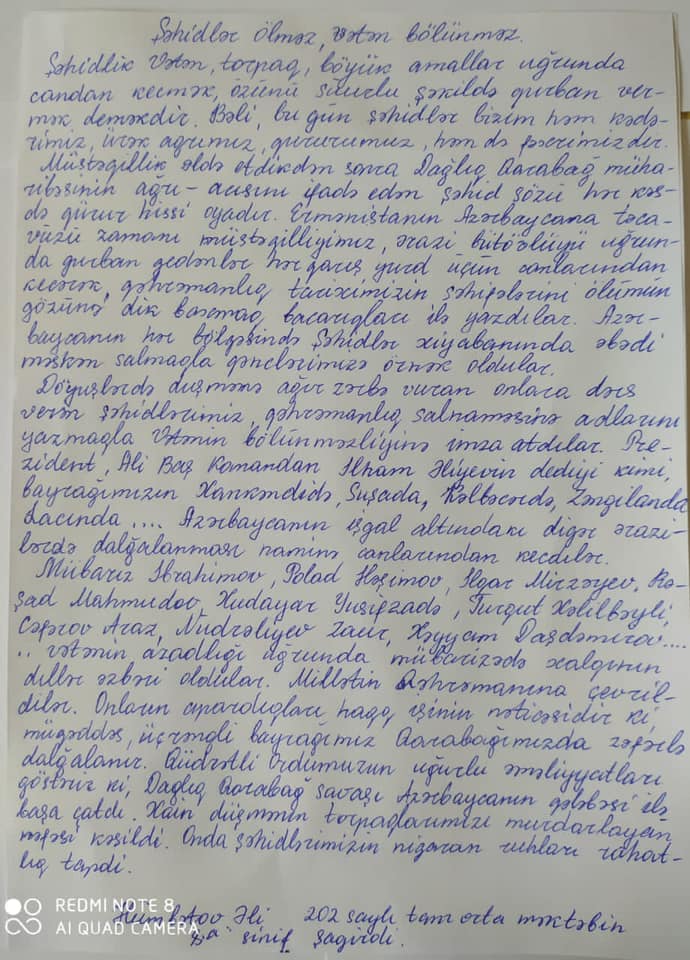 Şəhidlər ölməz, vətən bölünməz.
Şəhidlik Vətən, torpaq, böyük amallar uğrunda
candan kecmək, özünü şüurlu şəkildə qurban ver-
mək deməkdir. Bəli, bu gün şəhidlər bizim həm kədə-
rimiz, ürək ağrımız, qururumuz, həm də fəxrimizdir.
Müstəgillik əldə etdikdən sonra Dağlıq Qarabağ müha-
ribəsinin ağrı-acısını ifadə edən şəhid sözü hər kəs-
də qürur hissi oyadır. Ermənistanın Azərbaycana təca-
vüzü zamanı müstəgilliyimiz, ərazi bütövlüyü uğrun-
da qurban gedənlər hər qarış yurd üçün canlarından
kecərək, qəhrəmanlıq tariximizin səhifələrini ölümün
gözünə dik baxmaq bacarıqları ilə yazdılar. Azər-
baycanın hər bölgəsində Şəhidlər xiyabanında əbədi
məskən salmaqla gənclərimizə örnək oldular.
Döyüşlərdə düşmənə ağır zərbə vuran onlara dərs
verən şəhidlərimiz, qəhrəmanlıq salnaməsinə adlarını
yazmaqla Vətənin bölünməzliyinə imza atdılar. Pre-
zident, Ali Baş Komandan İlham Əliyevin dediyi kimi,
bayrağımızın Xankəndidə, Şuşada, Kəlbəcərdə, Zəngilanda
Lacında .... Azərbaycanın işgal altındakı digər ərazi-
lərdə dalğalanması naminə canlarından kecdilər.
Mübariz İbrahimov, Polad Həşimov, İlgar Mirzəyev, Rə-
şad Mahmudov, Xudayar Yusifzadə, Turqut Xəlilbəyli,
Cəfərov Araz, Nudrəliyev Zaur, Xəyyam Daşdəmirov....
.. vətənin azadlığı uğrunda mübarizədə xalqının
dillər əzbəri oldular. Millətin Qəhrəmanına çevril-
dilər. Onların apardıqları haqq işinin nəticəsidir ki,
mügəddəs, üçrəngli bayrağımız Qarabağımızda zəfərlə
dalğalanır. Qüdrətli Ordumuzun uğurlu əməliyyatları
göstərir ki, Dağlıq Qarabağ savaşı Azərbaycanın qələbəsi ilə
başa çatdı. Xain düşmənin torpaqlarımızı murdarlayan
nəfəsi kəsildi. Onda şəhidlərimizin nigaran ruhları rahat-
lıq tapdı.
Hümbətov Əli 202 saylı tam orta məktəbin
sinif şagirdi.
REDMI NOTE 8
AI QUAD CAMERA